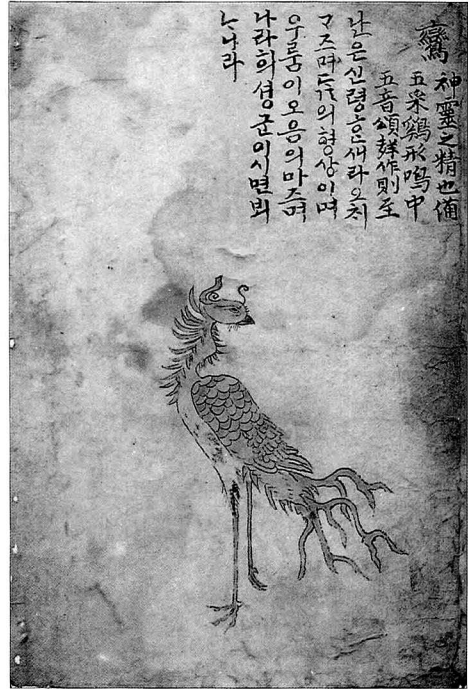 鸞
神靈之精也備
五采鷄形鳴中
五音頌聲作則至
난은신령ᄒᆞᆫ새라오ᄎᆡ
ᄀᆞᄌᆞ며ᄃᆞᆰ의형상이며
우룸이오음의마ᄌᆞ며
나라희셩군이시면뵈
ᄂᆞ니라